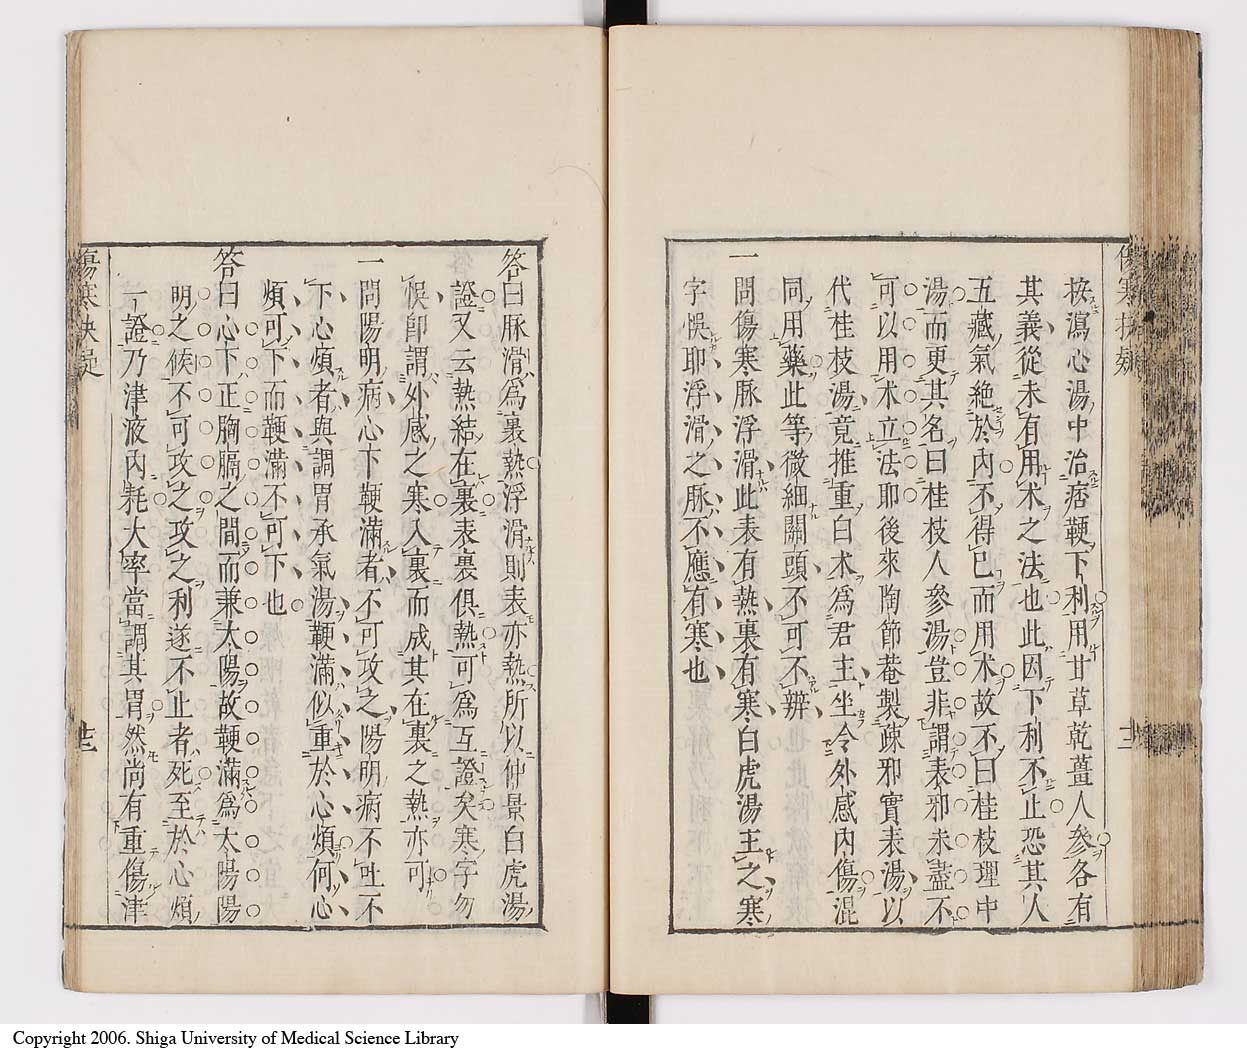 按瀉心湯中治痞鞕下利用甘草乾薑人參各有
其義從未有用术之法也此因下利不止恐其人
五藏氣絶於内不得已而用术故不曰桂枝理中
湯而更其名曰桂枝人參湯豈非謂表邪未盡不
可以用术立法耶後來陶節菴製疎邪實表湯以
代桂枝湯竟推重白术爲君主坐令外感内傷混
同用藥此等微細關頭不可不辨
一問傷寒脉浮滑此表有熱裏有寒白虎湯主之寒
字悞耶浮滑之脉不應有寒也
答曰脉滑爲裏熱浮滑則表亦熱所以仲景白虎湯
證又云熱結在裏表裏俱熱可爲互證矣寒字勿
悞即謂外感之寒入裏而成其在裏之熱亦可
一問陽明病心下鞕滿者不可攻之陽明病不吐不
下心煩者與調胃承氣湯鞕滿似重於心煩何心
煩可下而鞕滿不可下也
答曰心下正胸膈之間而兼太陽故鞕滿爲太陽陽
明之候不可攻之攻之利遂不止者死至於心煩
一證乃津液内耗大率當調其胃然尚有重傷津